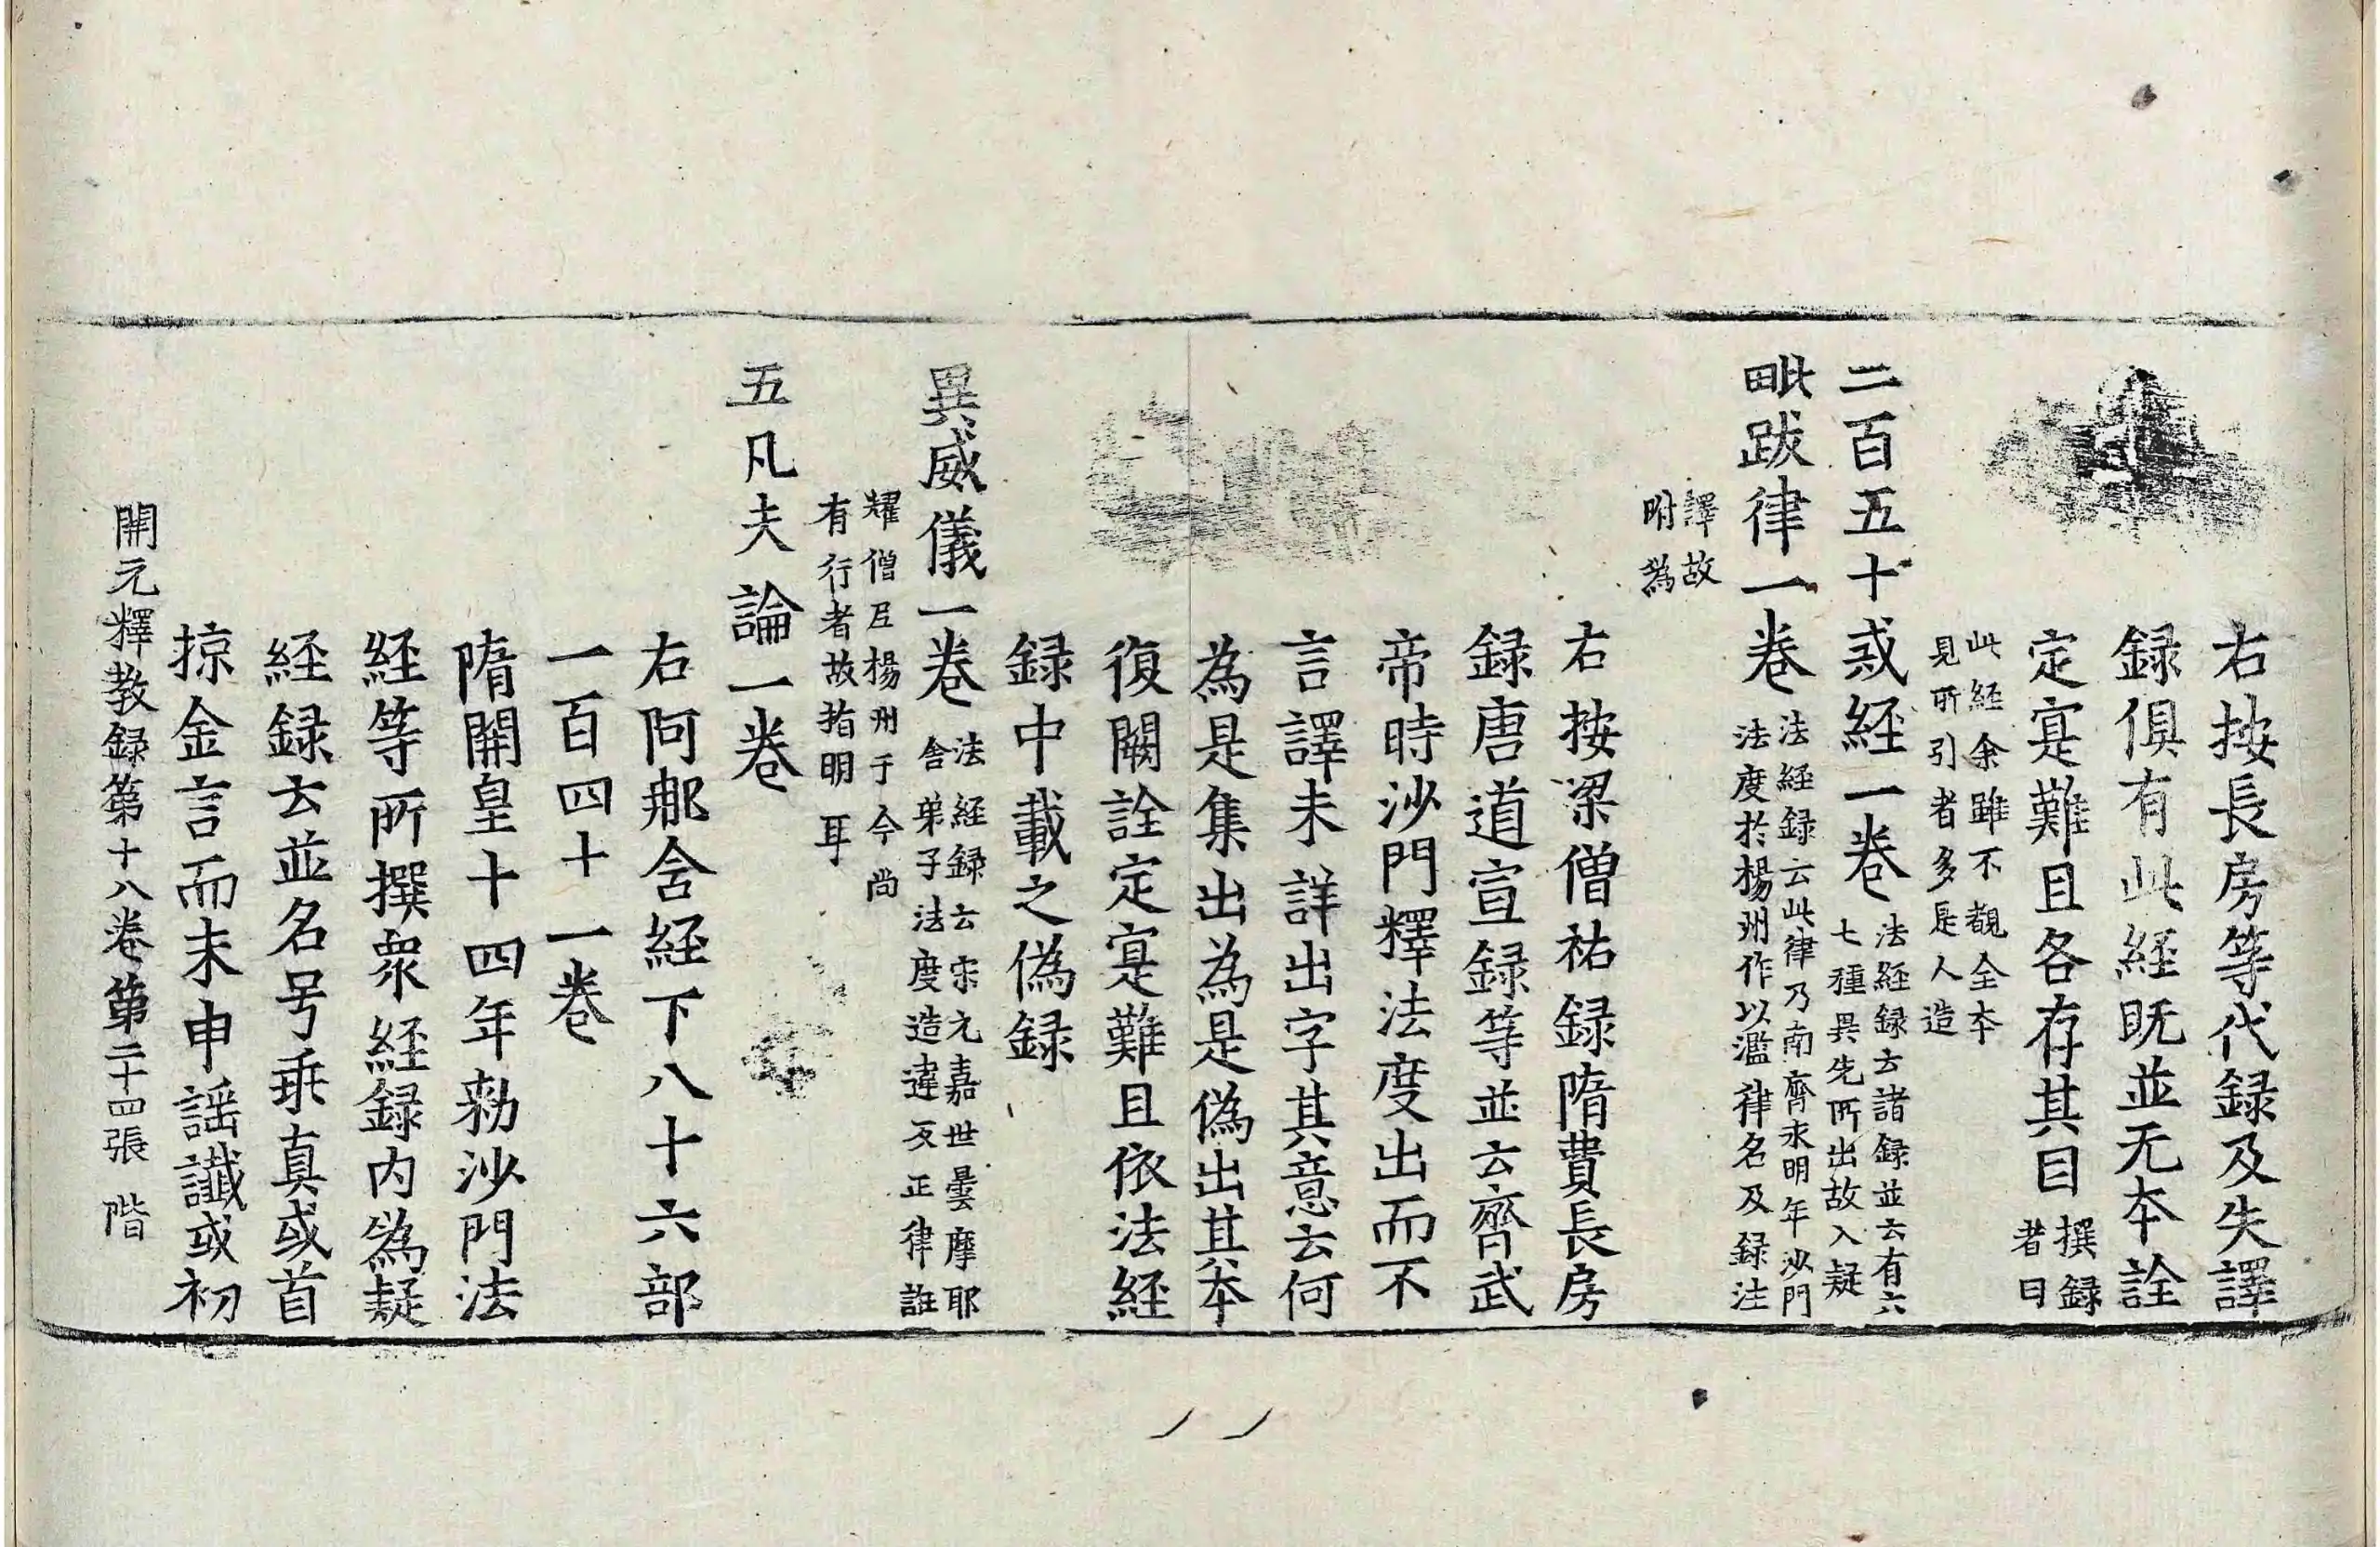 右按長房等代録及失譯
録俱有此経既並无本詮
定寔難且各存其目撰録者曰
此経余雖不覩全本
見所引者多是人造
二百五十戒経一卷法経録云諸録並云有六七種異先所出故入疑
毗跋律一卷法経録云此律乃南齊永明年沙門法度於楊州作以濫律名及録注
譯故
附為
右按梁僧祐録隋費長房
録唐道宣録等並云齊武
帝時沙門釋法度出而不
言譯未詳出字其意云何
為是集出為是偽出其本
復闕詮定寔難且依法経
録中載之偽録
異威儀一卷法経録云宋元嘉世曇摩耶舍弟子法度造違反正律誑
耀僧尼楊州于今尚
有行者故指明耳
五凡夫論一卷
右阿那含経下八十六部
一百四十一卷
隋開皇十四年勑沙門法
経等所撰衆経録内為疑
経録云並名号乖真或首
掠金言而末申謡讖或初
開元釋教録第十八卷第二十四張 階